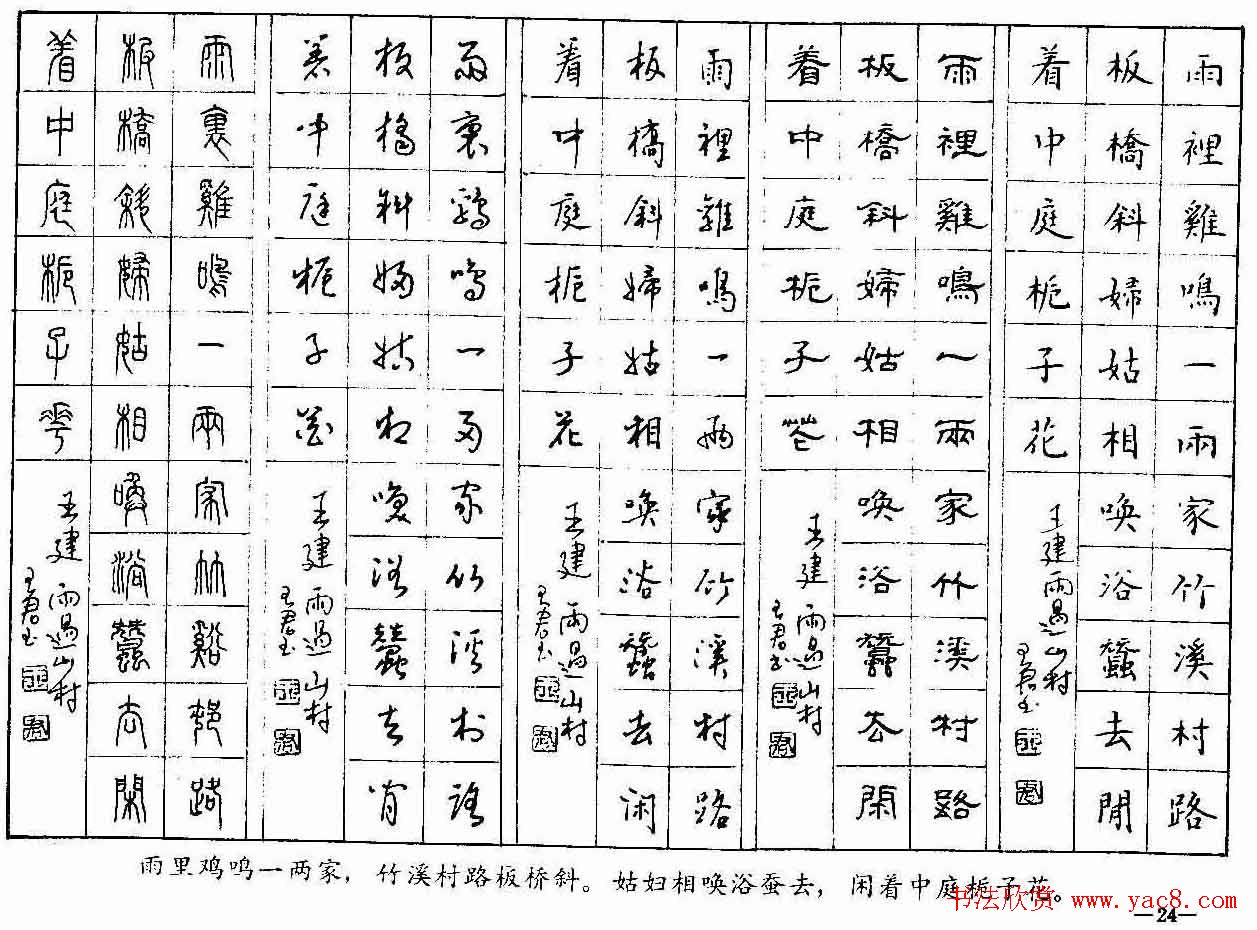 雨裡雞鳴一兩家竹溪村路
板橋斜婦姑相喚浴蠶去閒
着中庭栀子花
王建 雨過山村
王君书
雨裡雞鳴一兩家竹溪村路
板橋斜婦姑相喚浴蠶去閑
着中庭栀子花
王建 雨過山村
王君书
雨裡雞鳴一兩家竹溪村路
板橋斜婦姑相喚浴蠶去闲
着中庭栀子花
王建 雨過山村
王君书
雨裏鷄鳴一兩家竹溪村路
板橋斜婦姑相喚浴蠶去閒
着中庭栀子花
王建 雨過山村
王君书
雨裏雞鳴一兩家竹谿邨路
板橋斜婦姑相喚浴蠶去閑
着中庭栀子華
王建 雨過山村
王君书
雨里鸡鸣一两家，竹溪村路板桥斜。姑妇相唤浴蚕去，闲着中庭栀子花。
书法欣赏 www.yac8.com
—24—